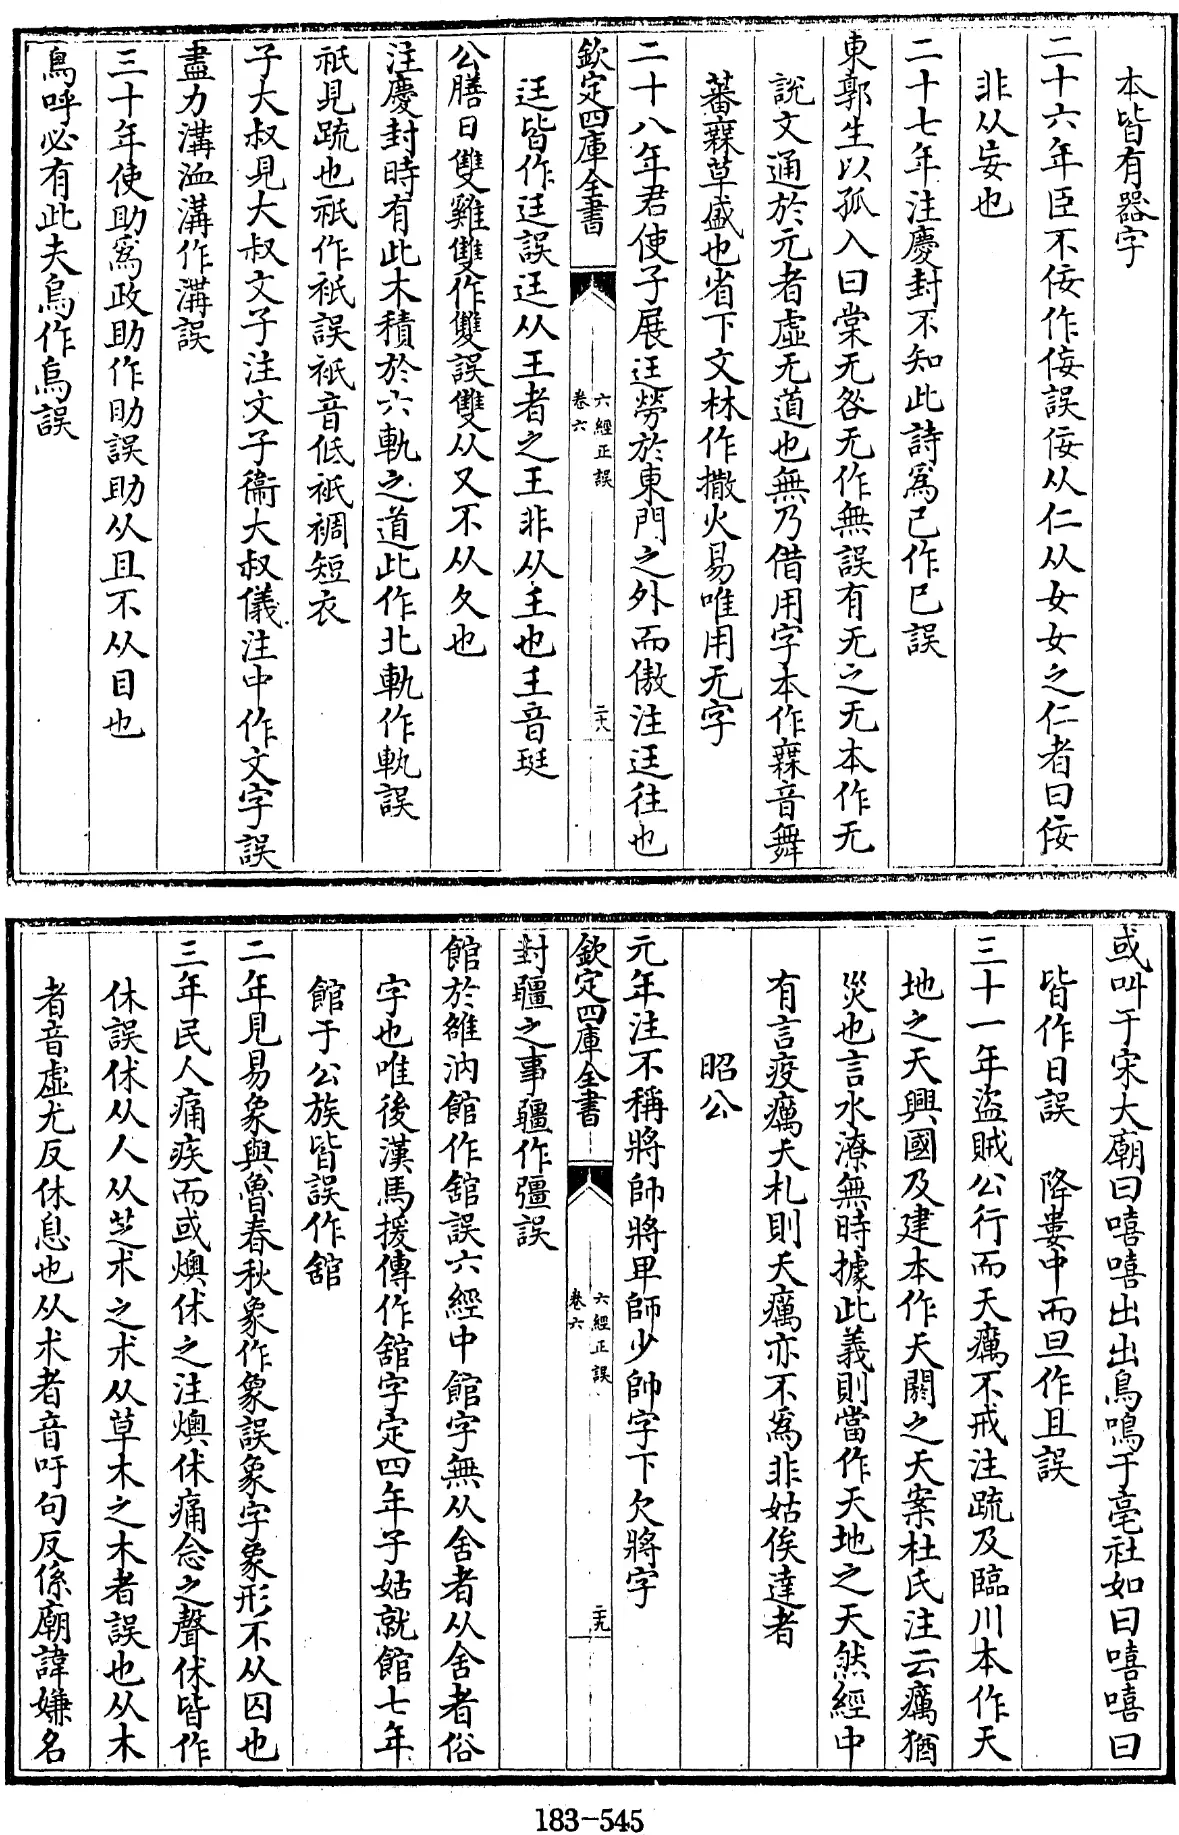 本皆有器字
二十六年臣不佞作侫誤佞从仁从女女之仁者曰佞
非从妄也
二十七年注慶封不知此詩爲己作巳誤
東郭生以孤入曰棠无咎无作無誤有无之无本作无
說文通於元者虛无道也無乃借用字本作𣞤音舞
蕃𣞤草盛也省下文林作撒火易唯用无字
二十八年君使子展迋勞於東門之外而傲注迋往也
欽定四庫全書
六經正誤
卷六
二十八
迋皆作廷誤迋从王者之王非从𡈼也𡈼音珽
公膳日雙雞雙作雙誤雙从又不从夂也
注慶封時有此木積於六軌之道此作北軌作軏誤
祇見疏也祇作衹誤衹音低衹裯短衣
子大叔見大叔文子注文子衞大叔儀注中作文字誤
盡力溝洫溝作溝誤
三十年使助爲政助作助誤助从且不从目也
烏呼必有此夫烏作鳥誤
或叫于宋大廟曰嘻嘻出出鳥鳴于亳社如曰嘻嘻曰
皆作日誤 降婁中而旦作且誤
三十一年盜賊公行而天癘不戒注疏及臨川本作天
地之天興國及建本作夭閼之夭案杜氏注云癘猶
災也言水潦無時據此義則當作天地之天然經中
有言疫癘夭札則夭癘亦不爲非姑俟達者
昭公
元年注不稱將帥將卑師少帥字下欠將字
欽定四庫全書
六經正誤
卷六
二十九
封疆之事疆作彊誤
館於雒汭館作舘誤六經中館字無从舍者从舍者俗
字也唯後漢馬援傳作舘字定四年子姑就館七年
館于公族皆誤作舘
二年見易象與魯春秋象作象誤象字象形不从囚也
三年民人痛疾而或燠休之注燠休痛念之聲休皆作
休誤休从人从芝朮之朮从草木之木者誤也从木
者音虛尤反休息也从朮者音吁句反係廟諱嫌名
183-545